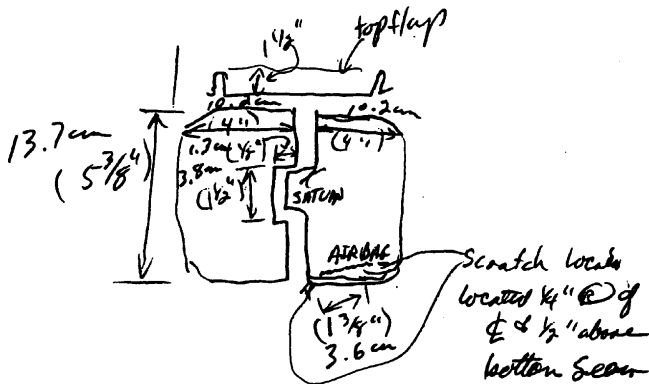 1 1/2"
top flap
10.2cm
(4")
10.2cm
(4")
13.7cm
(5 3/8")
1.3cm (1/2")
3.8cm
(1 1/2")
SATURN
AIRBAG
(1 3/8")
3.6cm
Scratch
located 1/4" of
℄ & 1/2" above
bottom seam